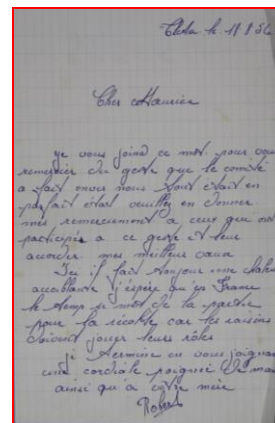 le 11 8 56
Cher Maurice
je vous joind ce mot pour vous
remercier du geste que le comité
a fait envers nous tout était en
parfait état veuillez en donner
mes remerciement a ceux qui ont
participés a ce geste et leur
mes meilleur vœux
Ici il fait toujour une chaleur
accablante j'espère qu'en France
le temp se met de la partie
pour la récolte car les raisins
doivent jouer leurs rôles
je termine en vous joignant
une cordiale poignée de main
ainsi qu'a votre mère
Robert